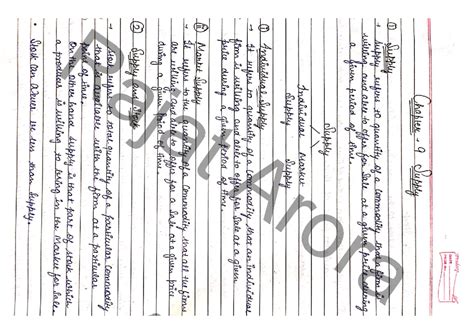 Chapter - 9 Supply
① Supply
→ Supply refers to quantity of a commodity that a firm is
willing and able to offer for sale at a given price during
a given period of time.
Supply
Individual Supply
Market Supply
① Individual Supply
→ It refers to quantity of a commodity that an individual
firm is willing and able to offer for sale at a given
price during a given period of time.
⑪ Market Supply
→ It refers to the quantity of a commodity that all the firms
are willing and able to offer for a sale at a given price
during a given period of time.
② Supply and Stock
→ Stock refers to total quantity of a particular commodity
that is available with the firm at a particular
point of time.
On the other hand, supply is that part of stock which
a producer is willing to bring in the market for sale.
• Stock can never be less than supply.
Rajat Arora